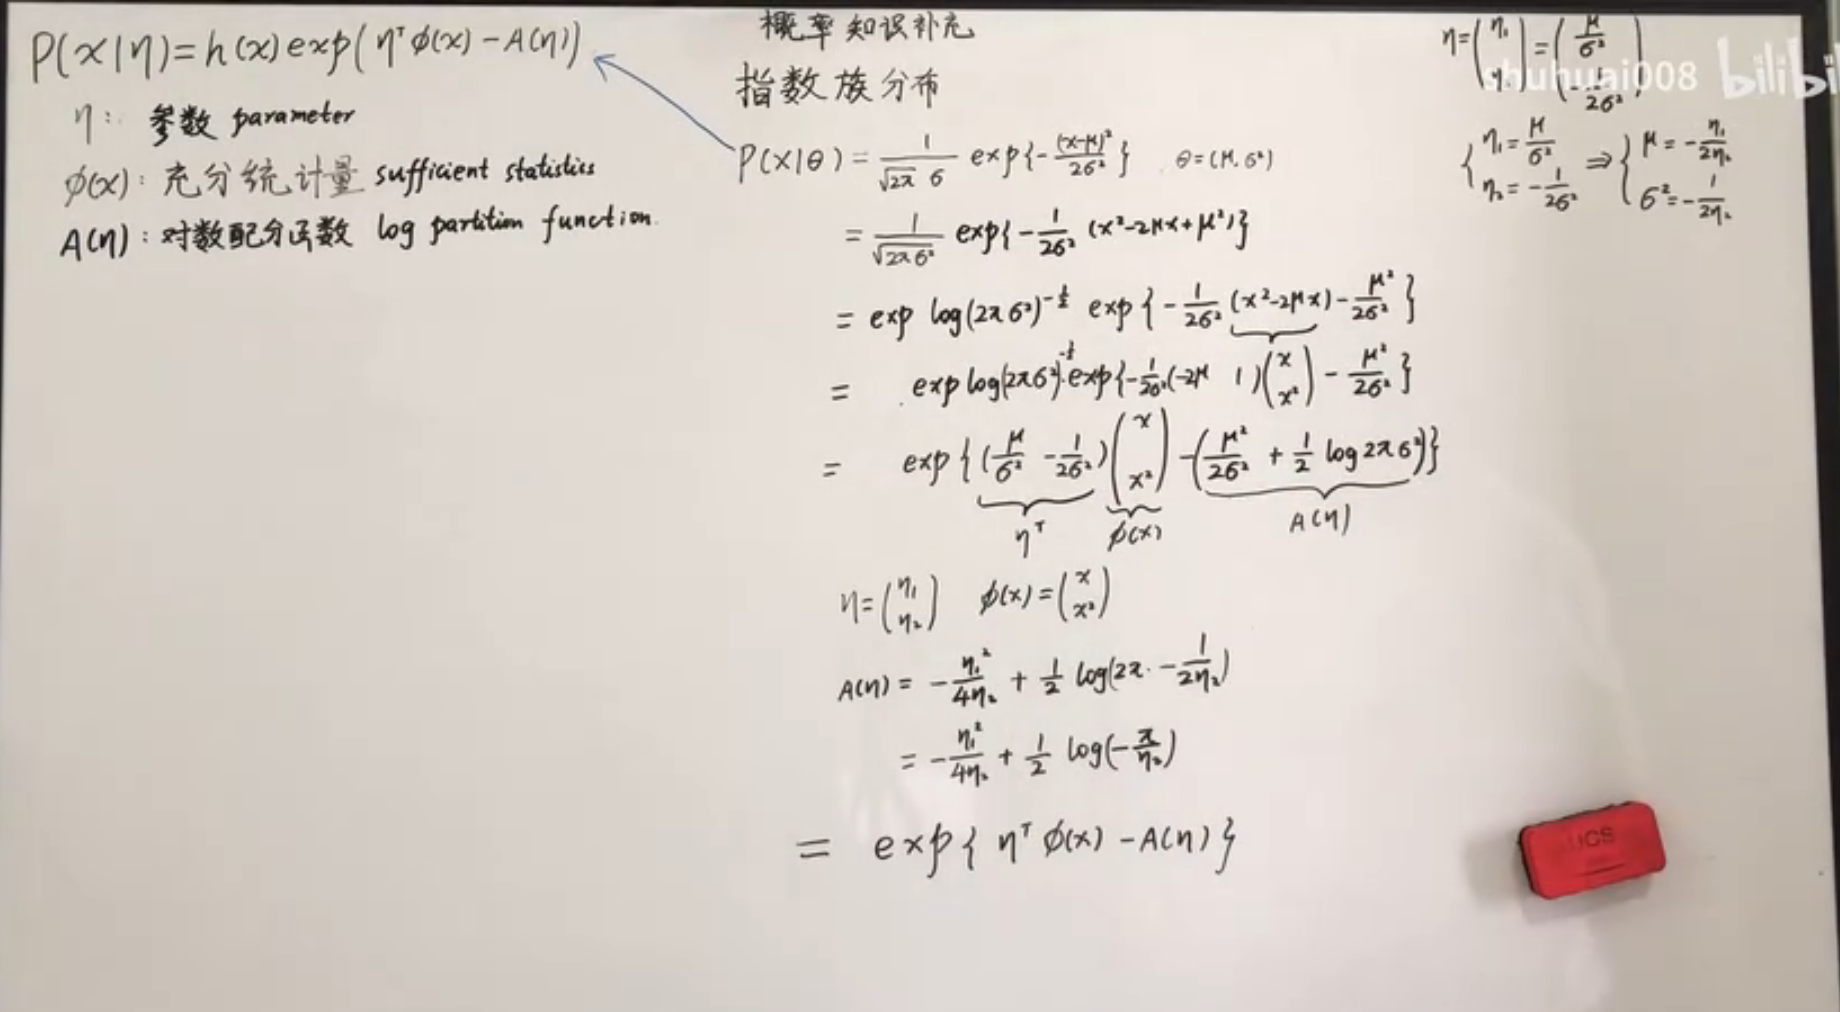 P(x|η) = h(x) exp(ηᵀφ(x) − A(η))
η: 参数 parameter
φ(x): 充分统计量 sufficient statistics
A(η): 对数配分函数 log partition function.
概率知识补充
指数族分布
P(x|θ) = 1/(√2π σ) exp{−(x−μ)²/2σ²} θ=(μ, σ²)
= 1/√2πσ² exp{−1/2σ² (x²−2μx+μ²)}
= exp log(2πσ²)^−½ exp{−1/2σ² (x²−2μx) − μ²/2σ²}
= exp log(2πσ²)^−½ · exp{−1/2σ² (−2μ 1)(x x²) − μ²/2σ²}
= exp{(μ/σ² −1/2σ²)(x x²) − (μ²/2σ² + 1/2 log 2πσ²)}
ηᵀ φ(x) A(η)
η = (η₁ η₂) φ(x) = (x x²)
A(η) = −η₁²/4η₂ + 1/2 log(2π · −1/2η₂)
= −η₁²/4η₂ + 1/2 log(−π/η₂)
= exp{ηᵀ φ(x) − A(η)}
η = (η₁ η₂) = (μ/σ² −1/2σ²)
shuhuai008 bilibili
{η₁ = μ/σ² η₂ = −1/2σ² ⇒ {μ = −η₁/2η₂ σ² = −1/2η₂
UCS